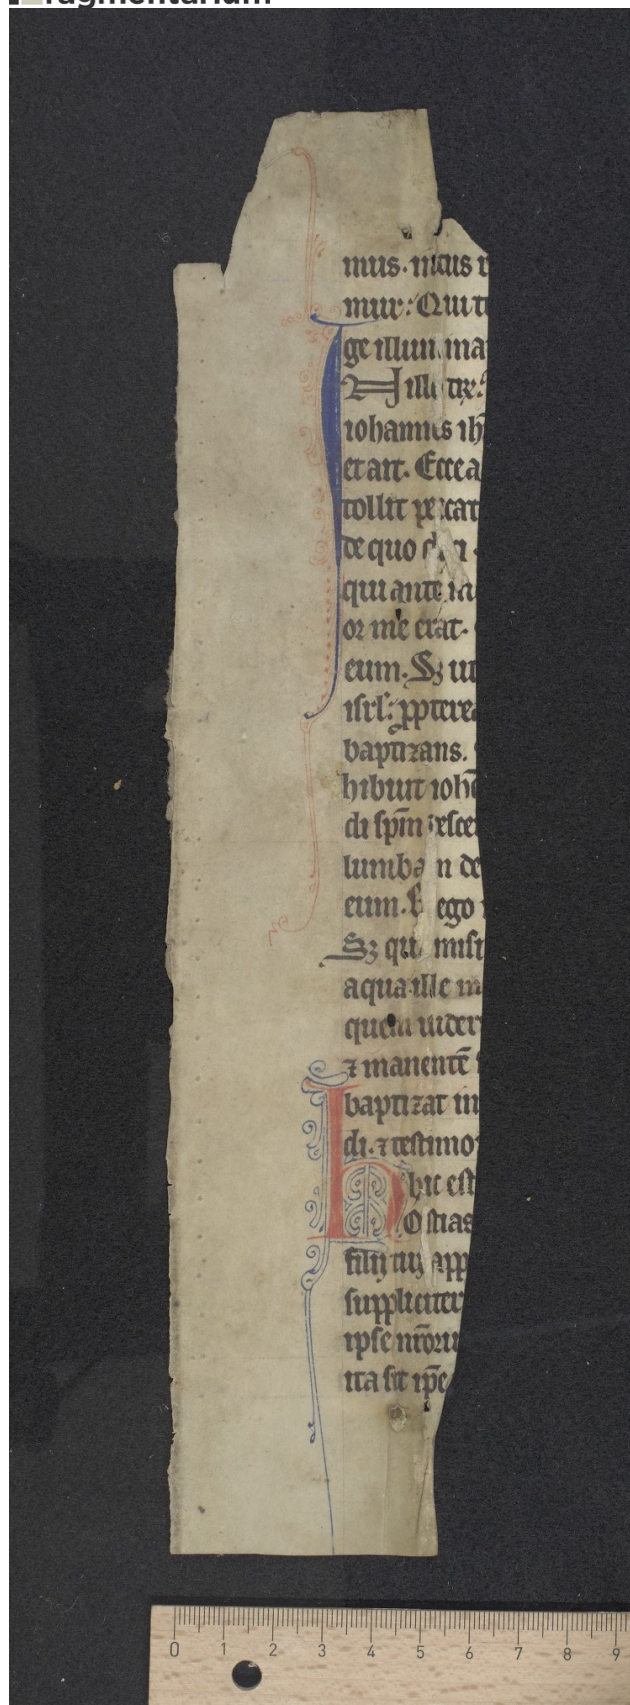 mus. intus
mur: Qui te
ge illumina
N ill tpr.
iohannes ih
et ait. Ecce a
tollit peccat
de quo dixi
qui ante m
or me erat.
eum. Sz ut
isrl: ppterea
baptizans.
hibuit ioh
di spm desce
lumbam de
eum. Et ego
Sz qui misit
aqua ille m
quem uider
⁊ manentē
baptizat in
di. ⁊ testimo
hic est
hOstias
filij tui app
suppliciter
ipse nr̄oru
ita sit ip̄e
0 1 2 3 4 5 6 7 8 9